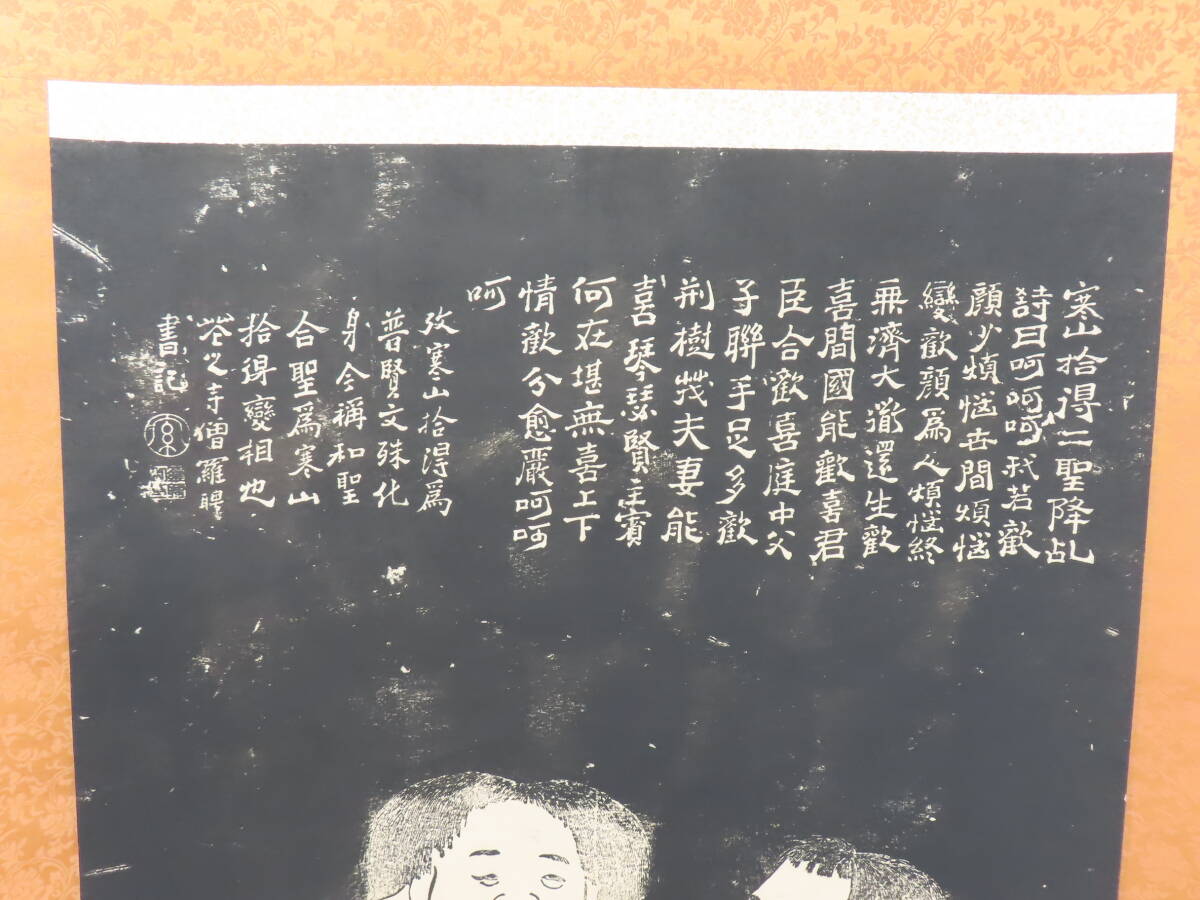 寒山拾得二聖降乩
詩曰呵呵呵我若歡
顏少煩惱世間煩惱
變歡顏爲人煩惱終
無濟大道還生歡
喜間國能歡喜君
臣合歡喜庭中父
子聯手足多歡
荆樹茂夫妻能
喜琴瑟賢主賓
何在堪無喜上下
情歡分愈嚴呵呵
呵
攷寒山拾得爲
普賢文殊化
身今稱和聖
合聖爲寒山
拾得變相也
此之寺僧羅
書記